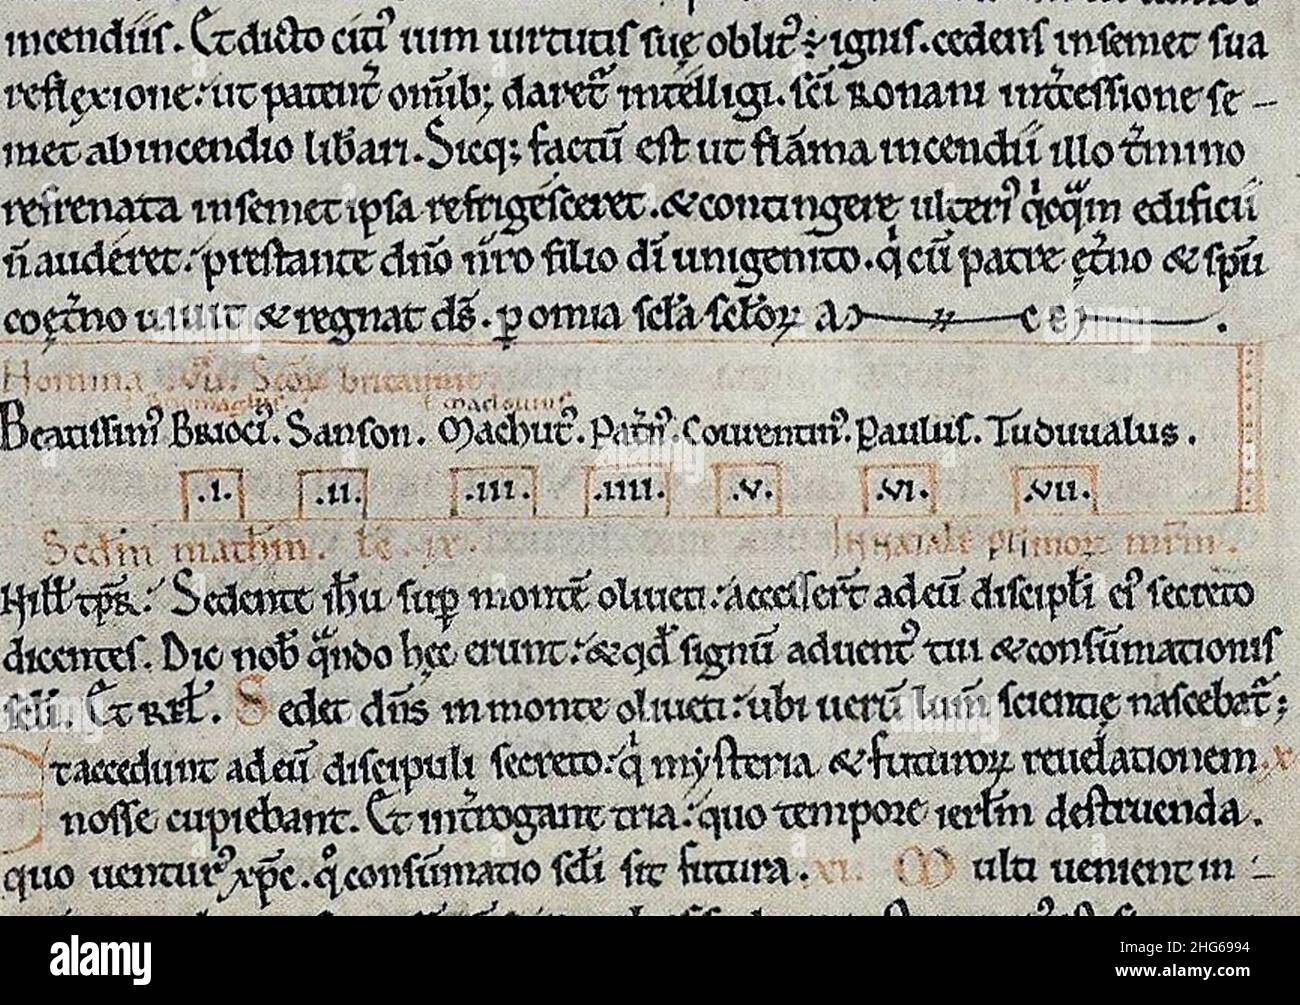 incendiis. Et dicto citi᾽ uim uirtutis suę oblit᾽ ÷ ignis. cedens in semet sua
reflexione. ut patent̄ om̄ib; daret̄ intelligi. sc̄i Ronani int̄cessione se-
met ab incendio lib̄ari. Sicq; factū est ut flāma incendii illo t̄mino
refrenata in semet ipsa refrigesceret. & contingere ulteri᾽ q̇cq̄m edificii
n̄ auderet. prestante dn̄o nr̄o filio dī unigenito. q̇ cū patre et̄no & sp̄u
coęt̄no uiuit & regnat ds̄. ꝑ omia scl̄a scl̄oꝝ
Beatissim᾽ Brioc᾽. Sanson. Machut᾽. Pat̄n᾽. Courentin᾽. Paulus. Tuduualus.
.I. .II. .III. .IIII. .V. .VI. .VII.
Scd̄m math̄m.
Sedente ih̄u sup̄ montē oliueti. accesser̄t ad eū discipl̄i ei᾽ secreto
dicentes. Dic nob̄ q̄ndo hęc erunt. & qd̄ signū aduent᾽ tui & consūmationis
scl̄i. Et rl̄. Sedet dn̄s in monte oliueti. ubi uerū lum̄ scientię nascebat̄;
Et accedunt ad eū discipuli secreto. q̇ mysteria & futuroꝝ reuelationem .x
nosse cupiebant. Et int̄rogant tria. quo tempore ierl̄m destruenda.
quo uentur᾽ xp̄c. q̊ consūmatio scl̄i sit futura. .xi. Multi uenient in
alamy
Image ID: 2HG6994
www.alamy.com